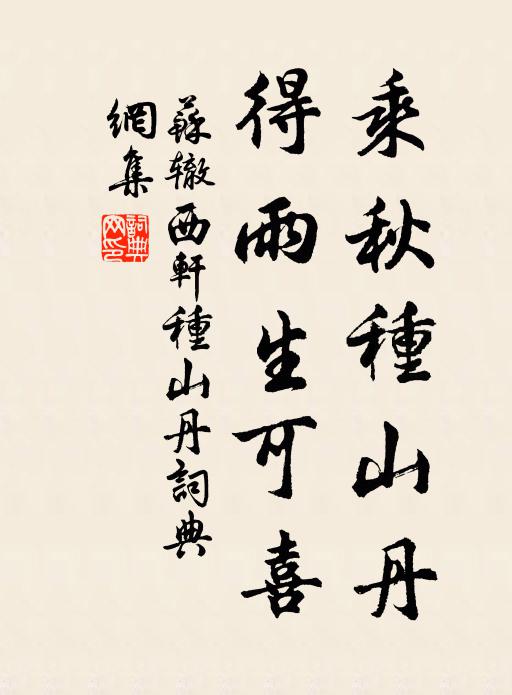 乘秋種山丹
得雨生可喜
蘇辙西軒種山丹詞典
網集
詞典
网印